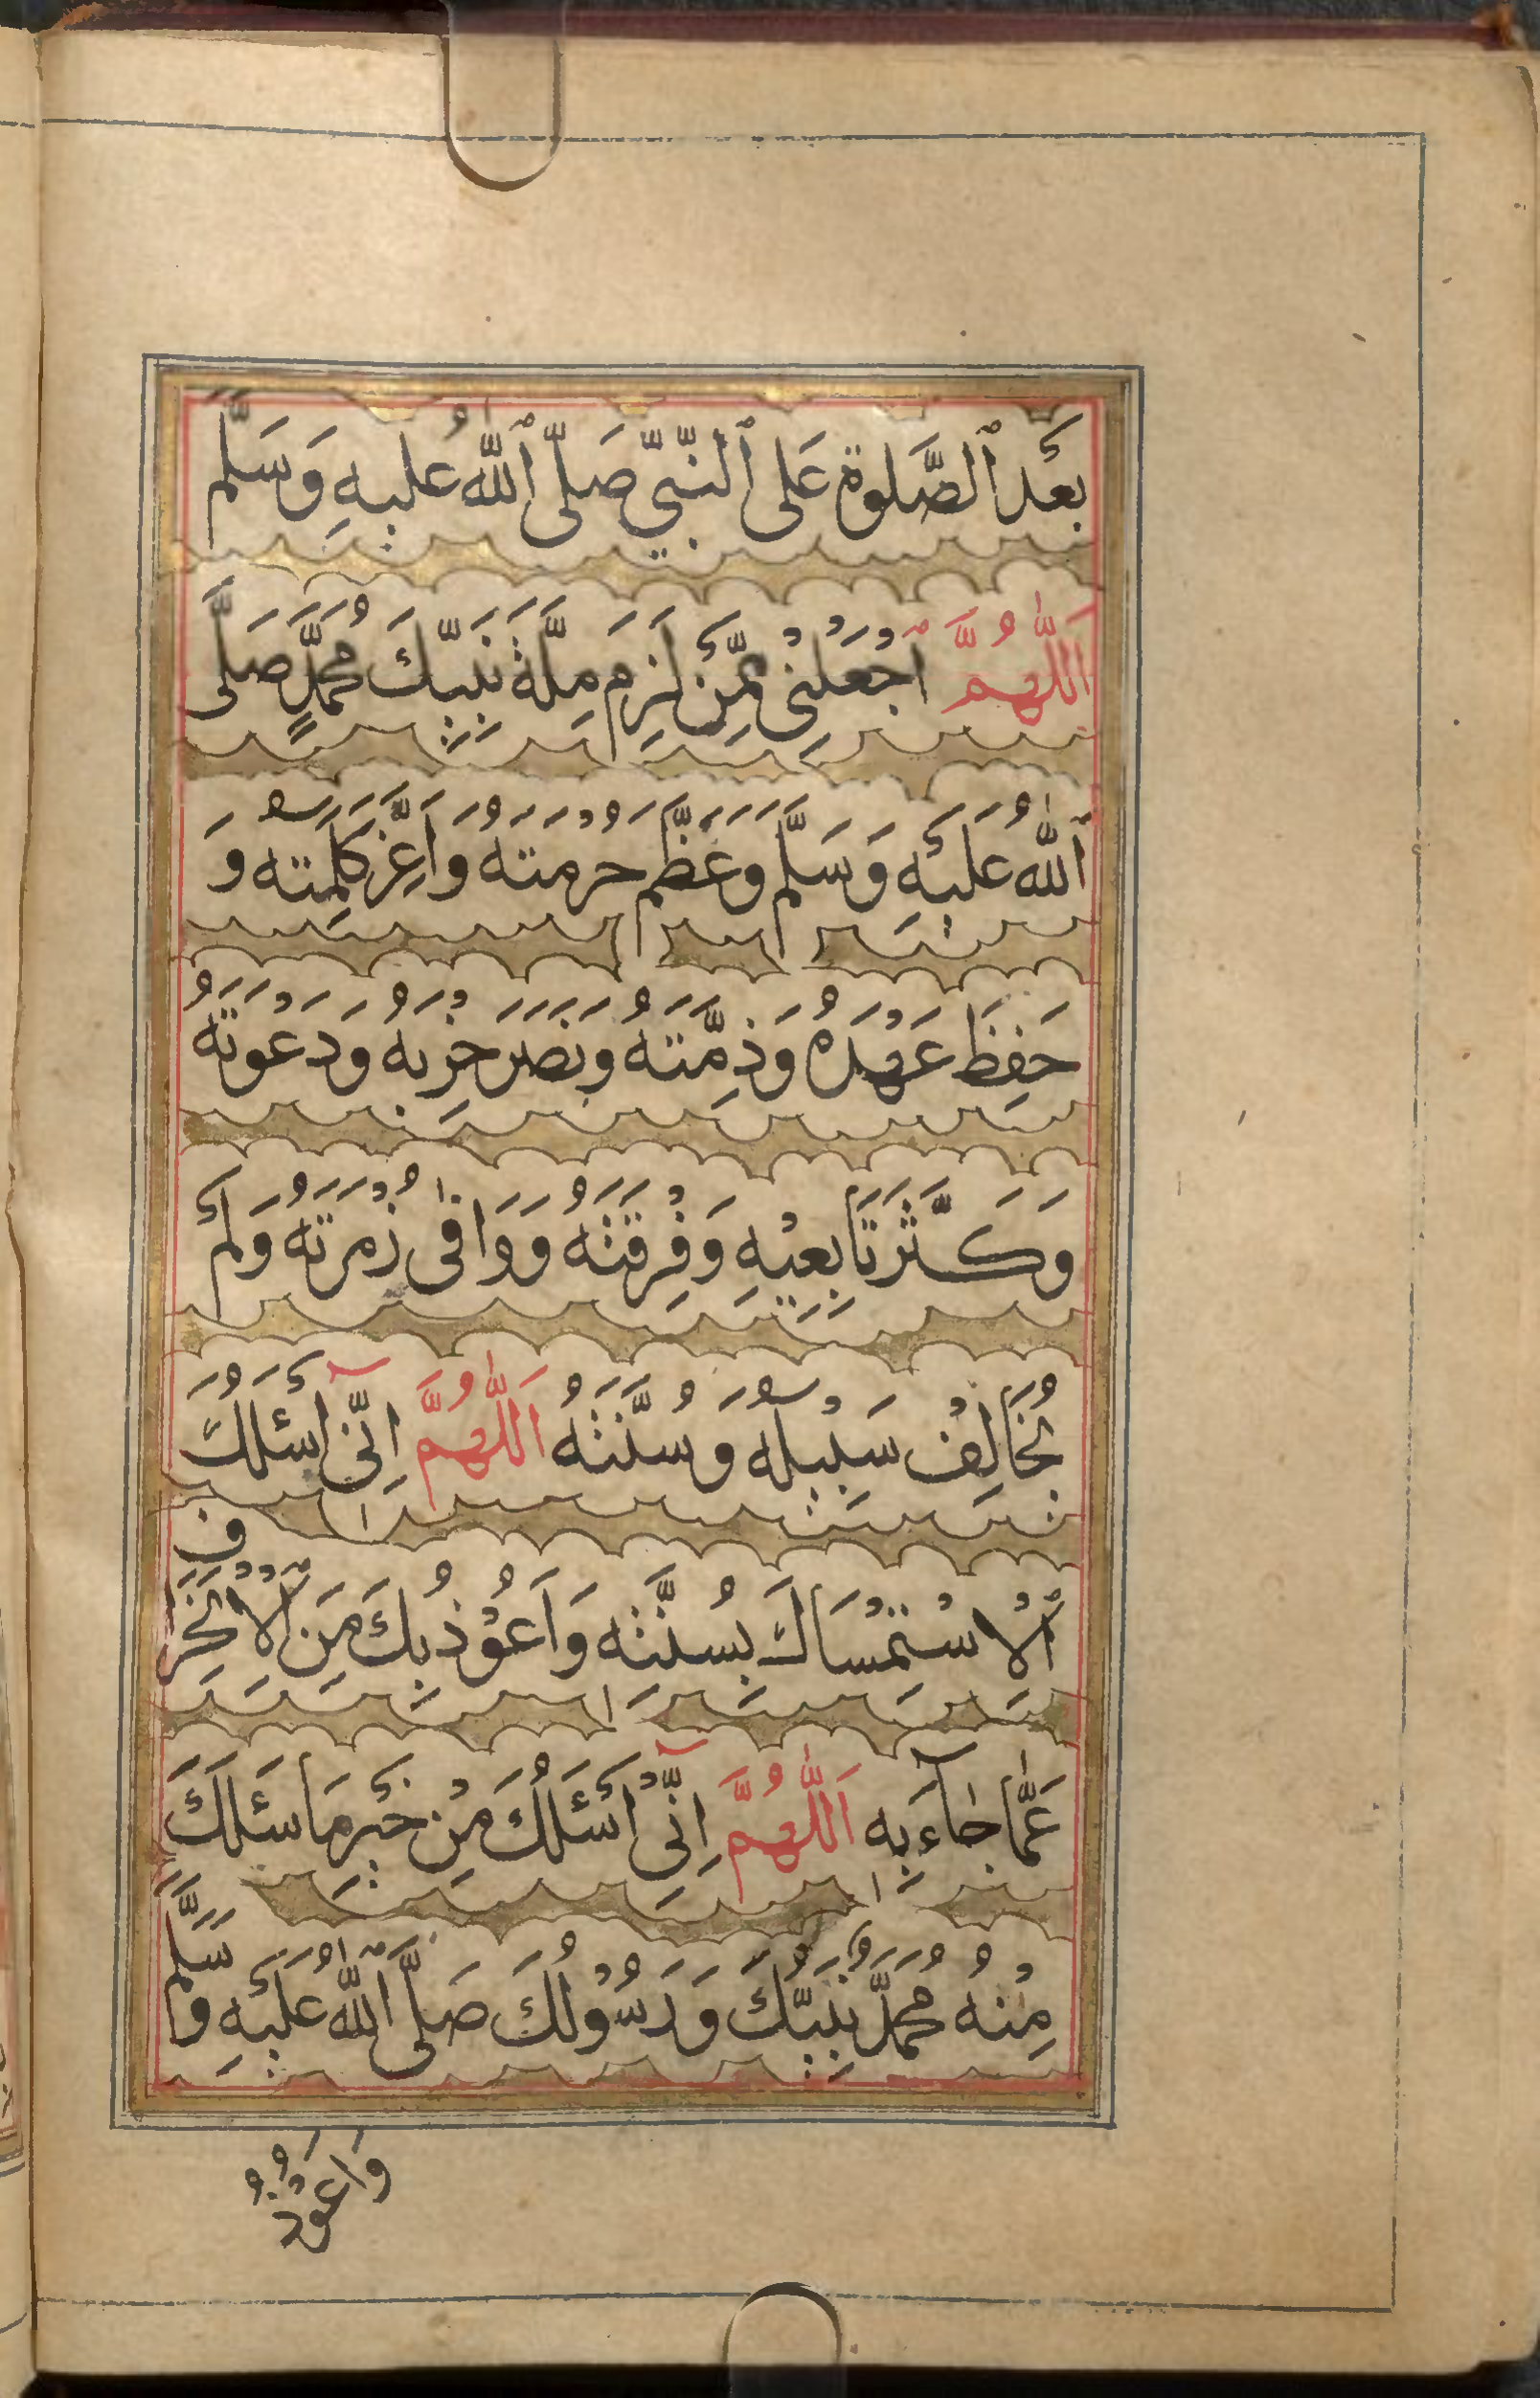 بَعْدَ ٱلصَّلٰوةِ عَلَى ٱلنَّبِيِّ صَلَّى ٱللّٰهُ عَلَيْهِ وَسَلَّمَ
اَللّٰهُمَّ ٱجْعَلْنِى مِمَّنْ لَزِمَ مِلَّةَ نَبِيِّكَ مُحَمَّدٍ صَلَّى
ٱللّٰهُ عَلَيْهِ وَسَلَّمَ وَعَظَّمَ حُرْمَتَهُ وَاَعَزَّ كَلِمَتَهُ وَ
حَفِظَ عَهْدَهُ وَذِمَّتَهُ وَنَصَرَ حِزْبَهُ وَدَعْوَتَهُ
وَكَثَّرَ تَابِعِيْهِ وَفِرْقَتَهُ وَوَافٰى زُمْرَتَهُ وَلَمْ
يُخَالِفْ سَبِيْلَهُ وَسُنَّتَهُ اَللّٰهُمَّ اِنِّىٓ اَسْئَلُكَ
ٱلْاِسْتِمْسَاكَ بِسُنَّتِهِ وَاَعُوْذُ بِكَ مِنَ ٱلْاِنْحِرَافِ
عَمَّا جَآءَ بِهِ اَللّٰهُمَّ اِنِّىٓ اَسْئَلُكَ مِنْ خَيْرِ مَا سَئَلَكَ
مِنْهُ مُحَمَّدٌ نَبِيُّكَ وَرَسُوْلُكَ صَلَّى ٱللّٰهُ عَلَيْهِ وَسَلَّمَ
وَاَعُوْذُ